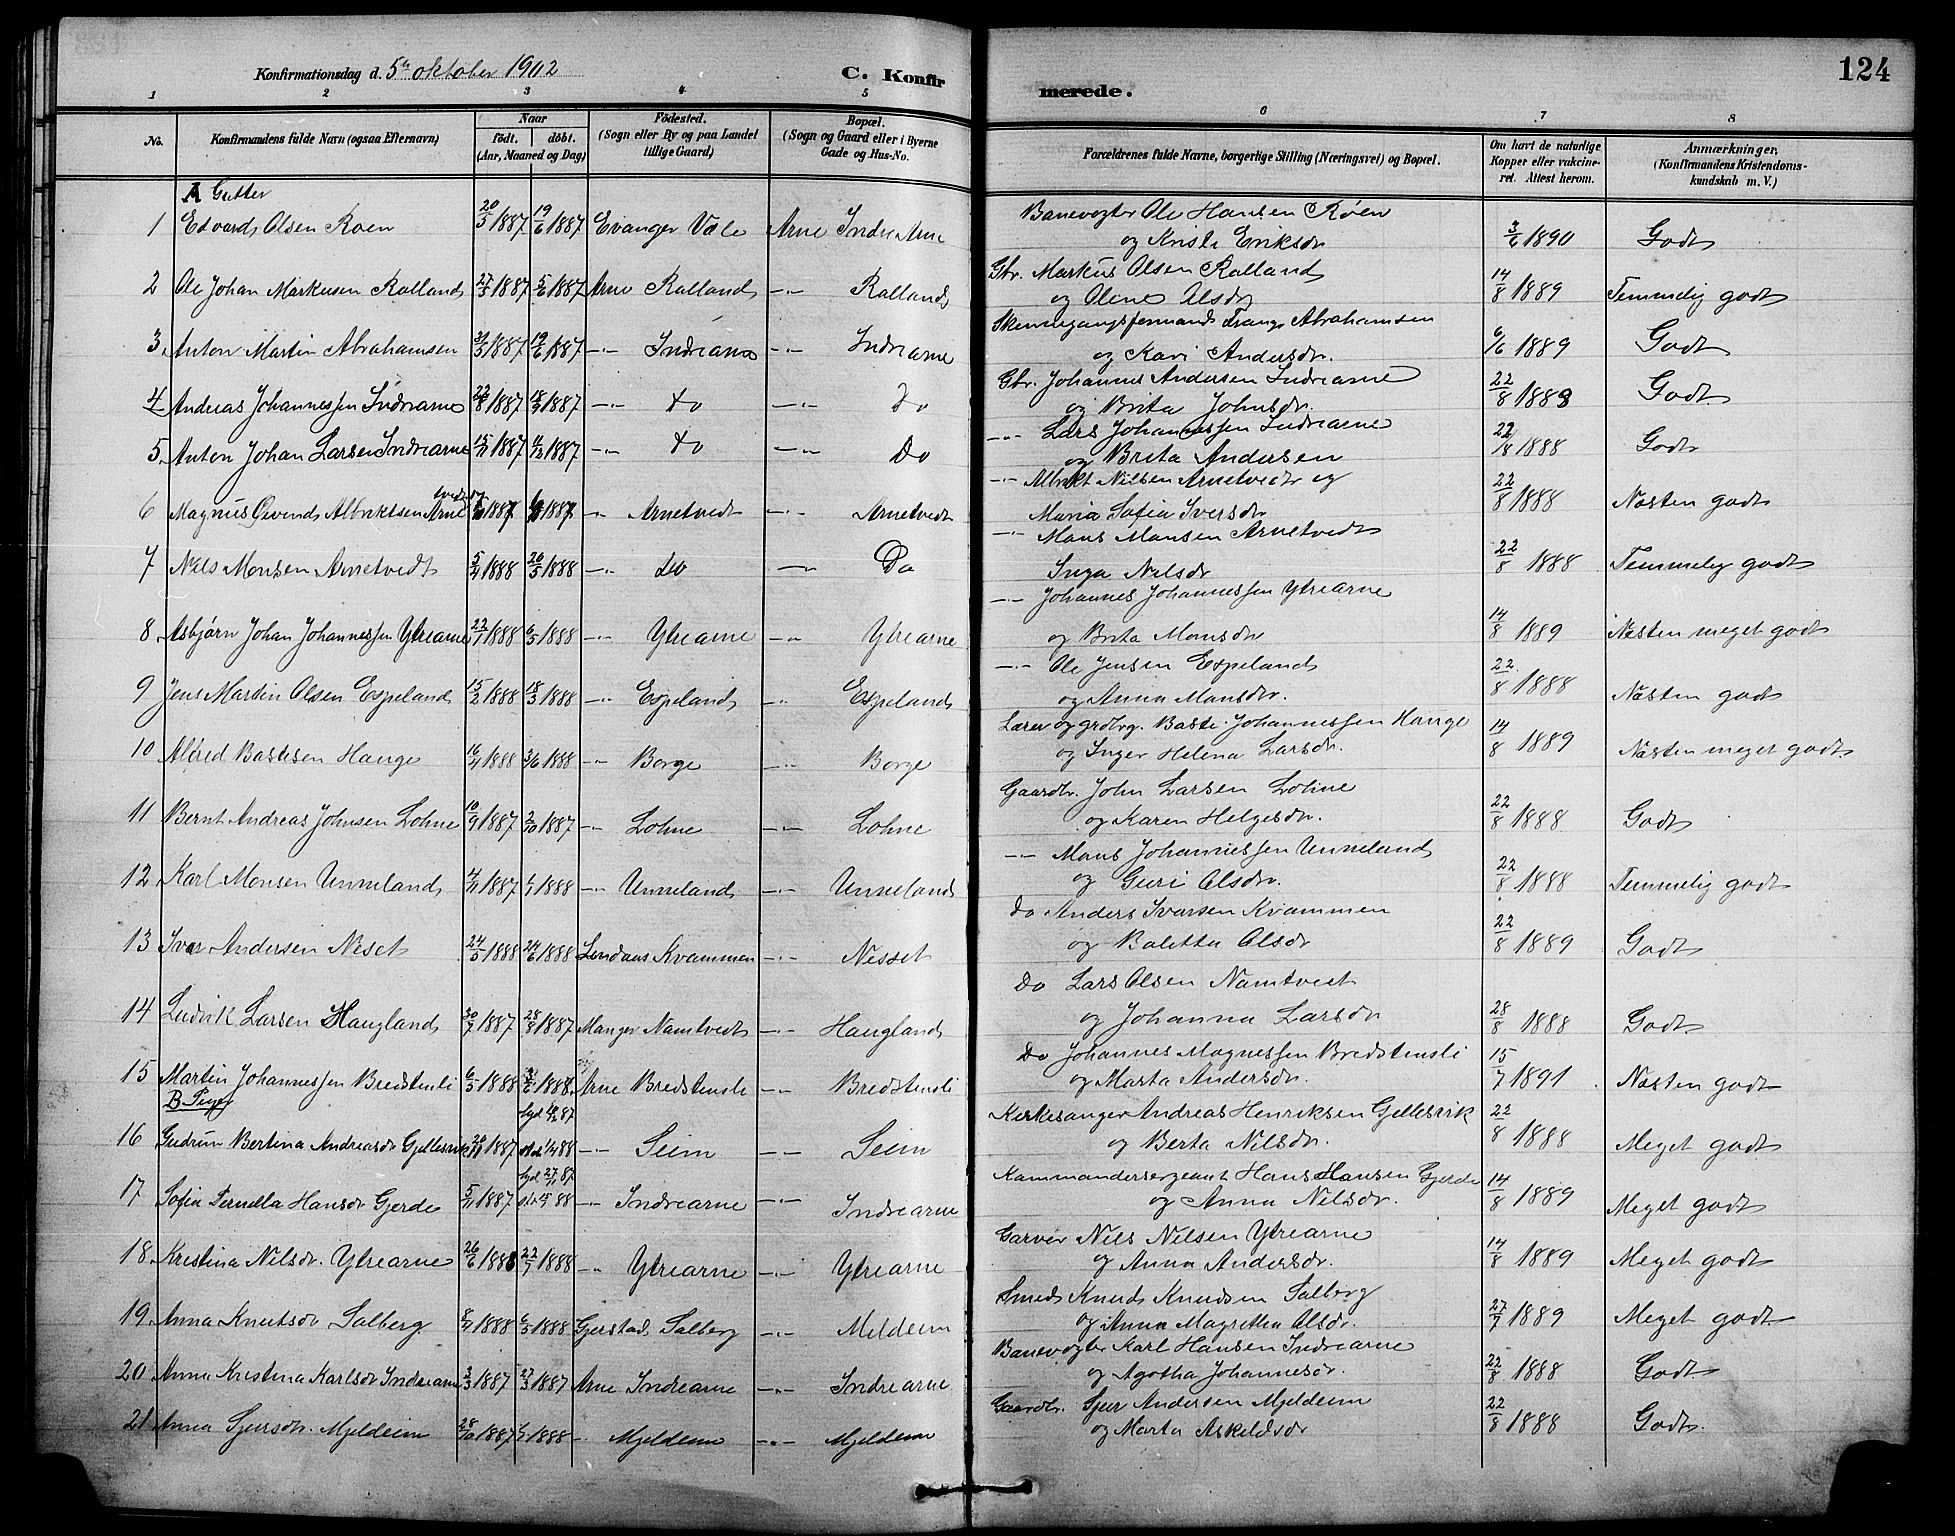 Konfirmationsdag d. 5te oktober 1902 C. Konfirmerede. 124
1 2 3 4 5 6 7 8
No. Konfirmandens fulde Navn (ogsaa Efternavn) Naar født. døbt. (Aar, Maaned og Dag) Fødested. (Sogn eller By og paa Landet tillige Gaard) Bopæl. (Sogn og Gaard eller i Byerne Gade og Hus-No. Forældrenes fulde Navne, borgerlige Stilling (Næringsvei) og Bopæl. Om havt de naturlige Kopper eller vakcineret. Attest herom. Anmærkninger, (Konfirmandens Kristendomskundskab m. V.)
A Gutter
1 Edvard Olsen Røen 20/5 1887 19/6 1887 Evanger Væle Arne Indre Arne Banevogter Ole Hansen Røen
og Kristi Eriksdr 3/6 1890 Godt
2 Ole Johan Markusen Ralland 27/3 1887 5/6 1887 Arne Ralland -"- Ralland Gbr. Markus Olsen Ralland
og Olene Olsdr 14/8 1889 Temmelig godt
3. Anton Martin Abrahamsen 31/3 1887 19/6 1887 -"- Indrearne -"- Indrearne Abrahamsen
og Kari Andersdr. 6/6 1889 Godt
4 Andreas Johannessen Indrearne 22/8 1887 18/9 1887 -"- Do -"- Do Gbr. Johannes Andersen Indrearne
og Brita Johnsdr. 22/8 1888 Godt
5. Anton Johan Larsen Indrearne 1887 1887 -"- Do -"- Do -"- Lars Johannessen Indrearne
og Brita Andersen 22/8 1888 Godt
6 Magnus Øivend Albriktsen Arnetvedt 1887 1887 -"- Arnetvedt -"- Arnetvedt -"- Albrikt Nilsen Arnetvedt og
Maria Sofia Iversdr 22/8 1888 Næsten godt
7 Nils Monsen Arnetvedt 5/4 1888 20/5 1888 -"- Do -"- Do -"- Mons Monsen Arnetvedt
Inga Nilsdr 22/8 1888 Temmelig godt
8 Asbjørn Johan Johannessen Ytrearne 22/1 1888 6/5 1888 -"- Ytrearne -"- Ytrearne -"- Johannes Johannessen Ytrearne
og Brita Monsdr 14/8 1889 Næsten meget godt
9 Jens Martin Olsen Espeland 15/2 1888 18/3 1888 -"- Espeland -"- Espeland -"- Ole Jensen Espeland
og Anna Monsdr. 22/8 1888 Næsten godt
10 Alfred Bastesen Hauge 16/4 1888 3/6 1888 -"- Borge -"- Borge Lærer og grdbrg. Baste Johannessen Hauge
og Inger Helena Larsdr. 14/8 1889 Næsten meget godt.
11 Bernt Andreas Johnsen Lohne 10/9 1887 2/10 1887 -"- Lohne -"- Lohne Gaardbr. John Larsen Lohne
og Karen Helgesdr. 22/8 1888 Godt
12 Karl Monsen Unneland 1887 1/1 1888 -"- Unneland -"- Unneland -"- Mons Johannessen Unneland
og Guri Olsdr. 22/8 1888 Temmelig godt
13 Ivar Andersen Neset 24/5 1888 24/6 1888 Lindaas Kvammen -"- Nesset Do Anders Ivarsen Kvammen
og Boletta Olsdr 22/8 1889 Godt
14 Ludvik Larsen Haugland 30/7 1887 28/8 1887 Manger Namtvedt -"- Haugland Do Lars Olsen Namtvest
og Johanna Larsdr 28/8 1888 Godt
15 Martin Johannessen Bredstensli 6/5 1888 3/6 1888 Arne Bredstensli -"- Bredstensli Do Johannes Magnessen Bredstensli
og Marta Andersdr. 15/7 1891 Næsten godt
B. Piger
16 Gudrun Bertina Andreasdr Gjellesvik 1887 -"- Seim -"- Seim Kirkesanger Andreas Henriksen Gjellesvik
og Berta Nilsdr. 22/8 1888 Meget godt
17 Sofia Pernella Hansdr Gjerde 5/11 1887 -"- Indrearne -"- Indrearne Kommandersergeant Hans Hansen Gjerde
og Anna Nilsdr. 14/8 1889 Meget godt
18. Kristina Nilsdr. Ytrearne 26/6 1888 22/7 1888 -"- Ytrearne -"- Ytrearne Garver Nils Nilsen Ytrearne
og Anna Andersdr. 14/8 1889 Meget godt
19 Anna Knutsdr Salberg 1888 6/5 1888 Gjerstad Salberg -"- Meldeim Smed Knud Knudsen Salberg
og Anna Magretha Olsdr. 27/7 1889 Meget godt
20 Anna Kristina Karlsdr Indrearne 2/3 1887 27/3 1887 Arne Indrearne -"- Indrearne Banevogter Karl Hansen Indrearne
og Agotha Johannesdr. 22/8 1888 Godt
21 Anna Sjursdr. Mjeldeim 28/10 1887 1/1 1888 - Mjeldeim -"- Mjeldeim Gaardbr. Sjur Andersen Mjeldeim
og Marta Askeldsdr 22/8 1888 Godt